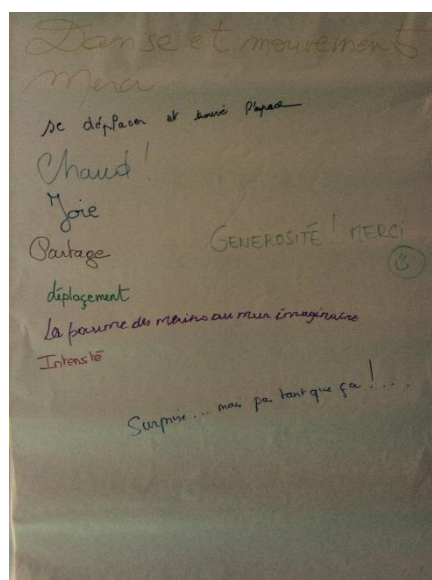 Danse et mouvement
Merci
se déplacer et trouvé l'espace
Chaud !
Joie
GENEROSITÉ ! MERCI
Partage
déplaçement
La paume des mains au mur imaginaire
Intensité
Surprise... mais pas tant que ça !...